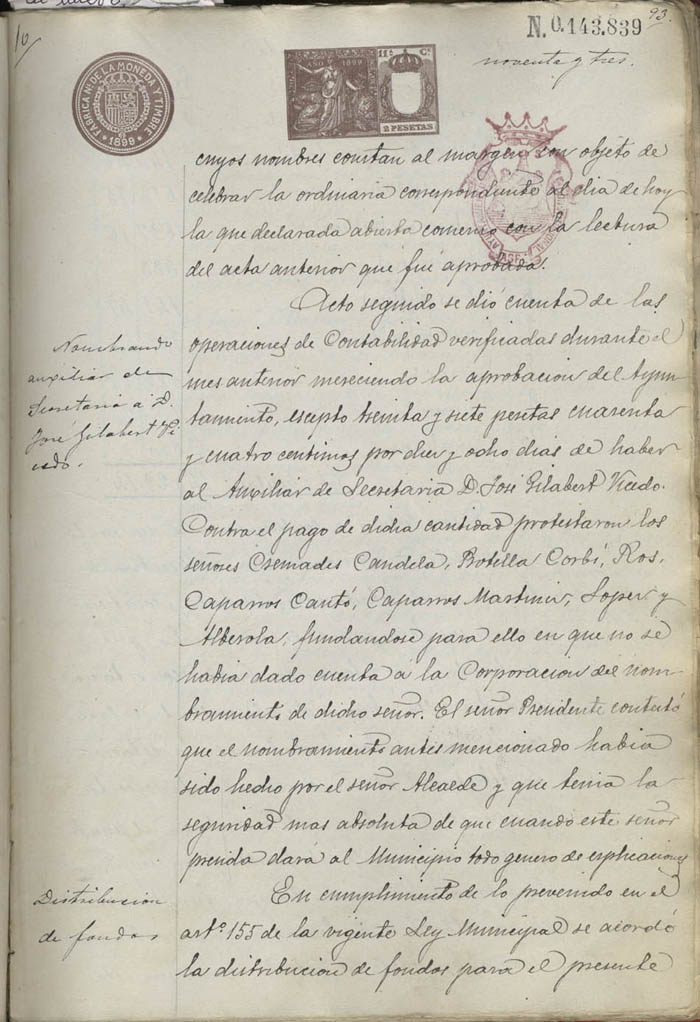 93.
N. 0.143.839
noventa y tres.
10
FABRICA NL DE LA MONEDA Y TIMBRE
1899
AÑO 1899
11ª C.
2 PESETAS
cuyos nombres constan al margen con objeto de
celebrar la ordinaria correspondiente al dia de hoy
la que declarada abierta comenzó con la lectura
del acta anterior que fué aprobada.
Acto seguido se dió cuenta de las
operaciones de Contabilidad verificadas durante el
mes anterior mereciendo la aprobacion del Ayun-
tamiento, escepto treinta y siete pesetas cuarenta
y cuatro centimos por diez y ocho dias de haber
al Auxiliar de Secretaria D. José Gilabert Vicedo.
Contra el pago de dicha cantidad protestaron los
señores Cremades Candela, Botella Corbí, Ros,
Caparros Cantó, Caparros Martinez, Lopez y
Alberola, fundandose para ello en que no se
habia dado cuenta á la Corporacion del nom-
bramiento de dicho señor. El señor Presidente contestó
que el nombramiento antes mencionado habia
sido hecho por el señor Alcalde y que tenia la
seguridad mas absoluta de que cuando este señor
presida dará al Municipio todo genero de esplicaciones
En cumplimiento de lo prevenido en el
artº 155 de la vigente Ley Municipal se acordó
la distribucion de fondos para el presente
Nombrando
auxiliar de
Secretaria á D.
José Gilabert Vi
cedo.
Distribucion
de fondos